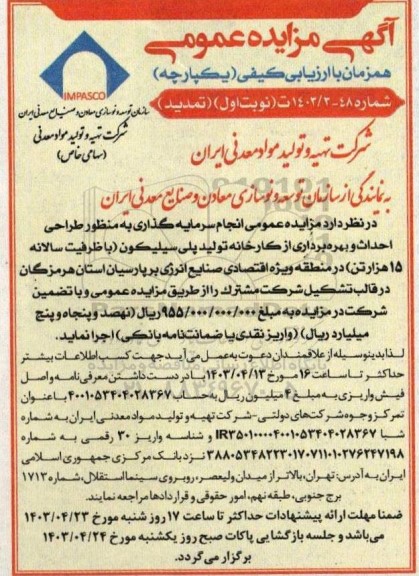 آگهی مزایده عمومی
همزمان با ارزیابی کیفی (یکپارچه)
شماره ۴۸-۱۴۰۳/۳ت (نوبت اول) (تمدید)
IMPASCO
سازمان توسعه و نوسازی معادن و صنایع معدنی ایران
شرکت تهیه و تولید مواد معدنی
(سهامی خاص)
شرکت تهیه و تولید مواد معدنی ایران
به نمایندگی از سازمان توسعه و نوسازی معادن و صنایع معدنی ایران
در نظر دارد مزایده عمومی انجام سرمایه گذاری به منظور طراحی
احداث و بهره برداری از کارخانه تولید پلی سیلیکون (با ظرفیت سالانه
۱۵ هزار تن) در منطقه ویژه اقتصادی صنایع انرژی بر پارسیان استان هرمزگان
در قالب تشکیل شرکت مشترک را از طریق مزایده عمومی و با تضمین
شرکت در مزایده به مبلغ ۹۵۵/۰۰۰/۰۰۰/۰۰۰ ریال (نهصد و پنجاه و پنج
میلیارد ریال) (واریز نقدی یا ضمانت نامه بانکی) اجرا نماید.
لذا بدینوسیله از علاقمندان دعوت به عمل می آید جهت کسب اطلاعات بیشتر
حداکثر تا ساعت ۱۶ مورخ ۱۴۰۳/۰۴/۱۳ با در دست داشتن معرفی نامه و اصل
فیش واریزی به مبلغ ۴ میلیون ریال به حساب ۴۰۰۱۰۵۳۴۰۴۰۲۸۳۶۷ با عنوان
تمرکز وجوه شرکت های دولتی-شرکت تهیه و تولید مواد معدنی ایران به شماره
شبا IR۳۵۰۱۰۰۰۰۴۰۰۱۰۵۳۴۰۴۰۲۸۳۶۷ و شناسه واریز ۳۰ رقمی به شماره
۳۸۸۰۵۳۴۸۲۲۳۰۱۷۰۷۱۱۰۱۰۲۷۶۲۴۷۱۹۸ نزد بانک مرکزی جمهوری اسلامی
ایران به آدرس: تهران، بالاتر از میدان ولیعصر، روبروی سینما استقلال، شماره ۱۷۱۳
برج جنوبی، طبقه نهم، امور حقوقی و قراردادها مراجعه نمایند.
ضمنا مهلت ارائه پیشنهادات حداکثر تا ساعت ۱۷ روز شنبه مورخ ۱۴۰۳/۰۴/۲۳
می باشد و جلسه بازگشایی پاکات صبح روز یکشنبه مورخ ۱۴۰۳/۰۴/۲۴
برگزار می گردد.